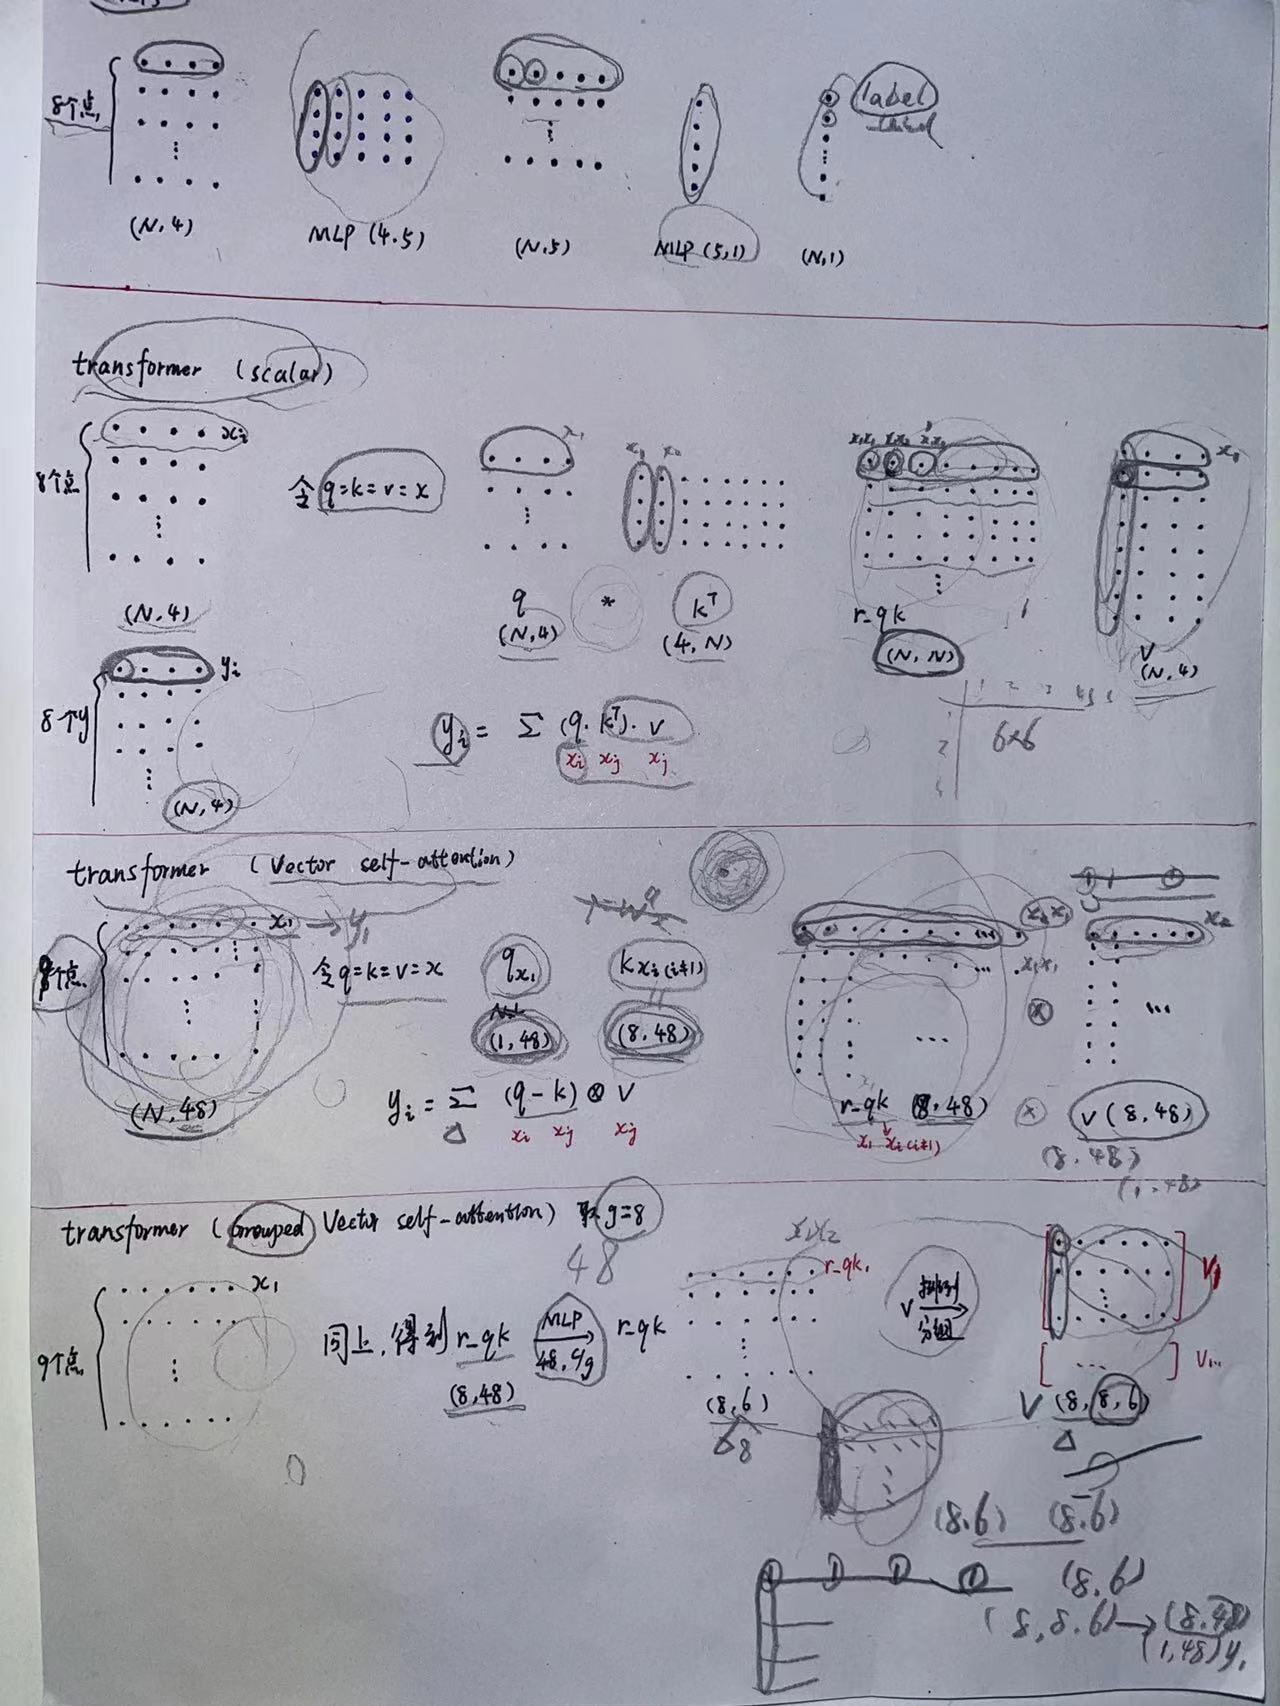 8个点
label
(N, 4)
MLP (4.5)
(N.5)
MLP (5,1)
(N,1)
transformer (scalar)
8个点
xi
令 q=k=v=x
x1
x1 x2
x1x1
x1
(N, 4)
q * kT
(N,4) (4, N)
r-qk
(N, N)
V
(N, 4)
8个y
yi
yi = Σ (q. kT). v
xi xj xj
6×6
(N, 4)
transformer (Vector self-attention)
x1 → y1
个点
令q=k=v=x
qx1
kxi(i≠1)
(1, 48)
(8, 48)
x2
⊗
...
(N, 48)
yi = Σ (q - k) ⊗ V
xi xj xj
r-qk (8.48)
x1 xi(i≠1)
⊗ V (8, 48)
(8.48)
(1.48)
transformer (Grouped Vector self-attention) 取 g=8
48
x1
x1x2
r-qk1
9个点
同上, 得到 r-qk MLP 48, c/g r-qk
(8,48)
(8,6)
8
V 排列 分组
V1
V...
V (8, 8, 6)
(8.6) (8.6)
(8.6)
(8,8.6) → (8.48)
(1,48) y1